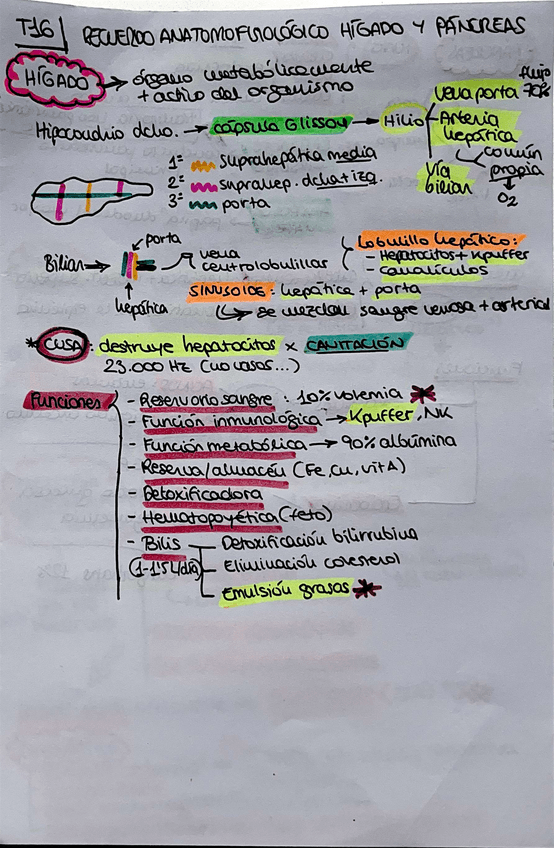 T16 RECUERDO ANATOMOFISIOLÓGICO HÍGADO Y PÁNCREAS
HÍGADO → órgano metabólicamente
+ activo del organismo
Hipocondrio dcho. → cápsula Glisson → Hilio
Vena porta flujo 70%
Arteria hepática
común
propia
↓
O2
Vía biliar
1º suprahepática media
2º suprahep. dcha+izq.
3º porta
Biliar →
porta
hepática
vena centrolobulillar
Lobulillo hepático:
- Hepatocitos + Kpuffer
- canalículos
SINUSOIDE: hepática + porta
↳ se mezclan sangre venosa + arterial
* CUSA: destruye hepatocitos x CAVITACIÓN
23.000 Hz (no vasos...)
Funciones
- Reservorio sangre: 10% volemia *
- Función inmunológica → Kpuffer, NK
- Función metabólica → 90% albúmina
- Reserva/almacén (Fe, Cu, vit A)
- Detoxificadora
- Hematopoyética (feto)
- Bilis
(1-1'5L/día)
- Detoxificación bilirrubina
- Eliminación colesterol
- Emulsión grasas *